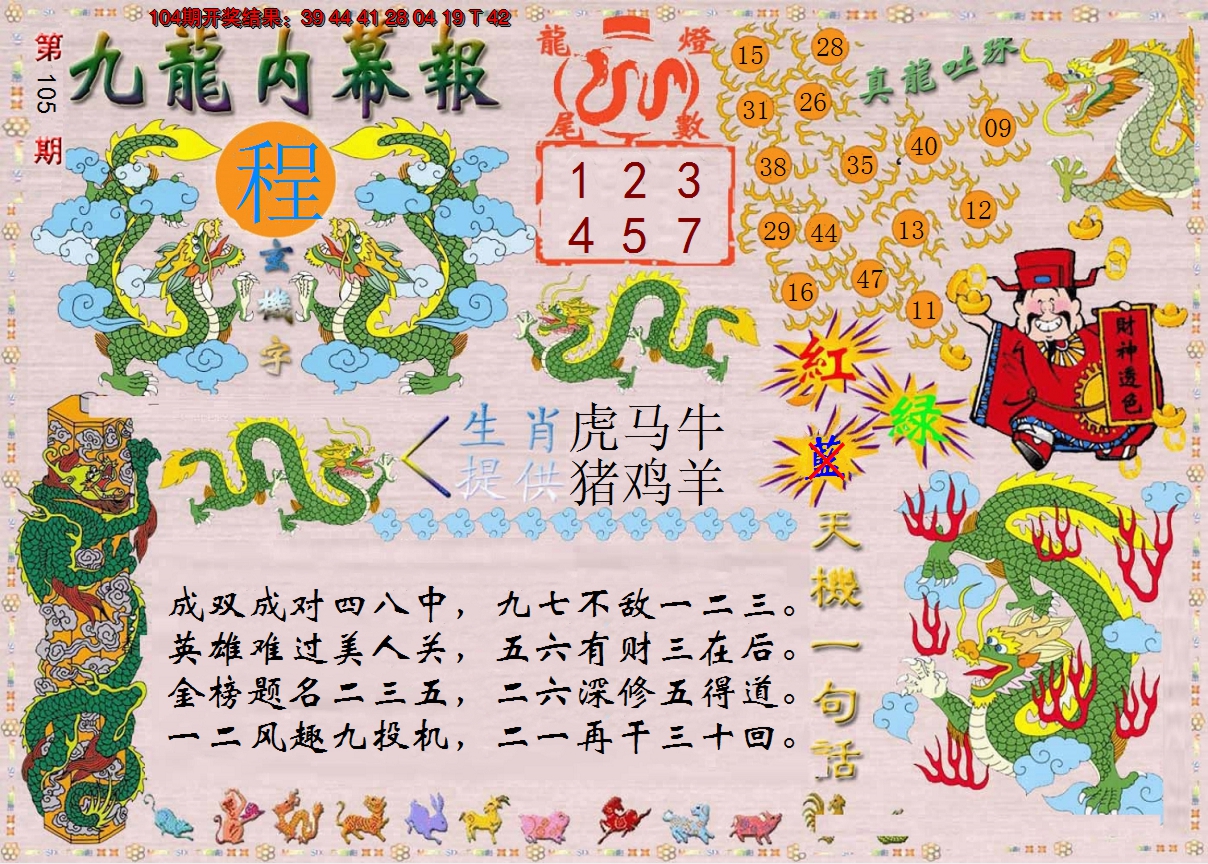 104期开奖结果：39 44 41 28 04 19 T 42
第105期
九龍内幕報
程
玄機字
龍燈
尾數
1 2 3
4 5 7
真龍吐珠
15 28
31 26
38 35 40 09
29 44 13 12
16 47 11
財神透色
紅
綠
藍
生肖提供
虎马牛
猪鸡羊
天機一句話
成双成对四八中，九七不敌一二三。
英雄难过美人关，五六有财三在后。
金榜题名二三五，二六深修五得道。
一二风趣九投机，二一再干三十回。